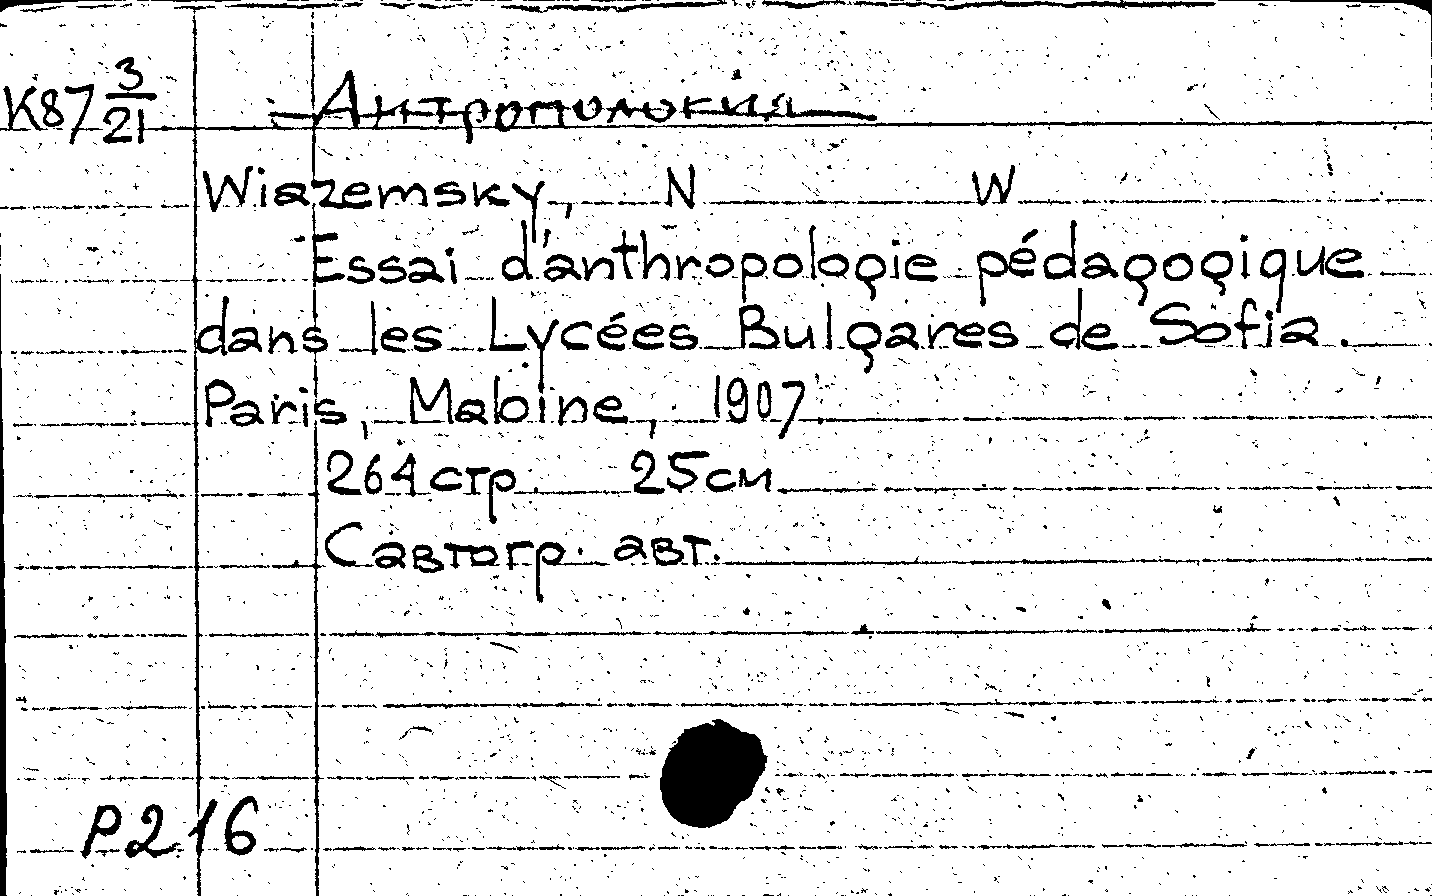 К87 3/21 Антропология
Wiazemsky, N W
Essai d'anthropologie pédagogique
dans les Lycées Bulgares de Sofia.
Paris, Maloine, 1907
264 стр. 25 см
С автогр. авт.
Р216